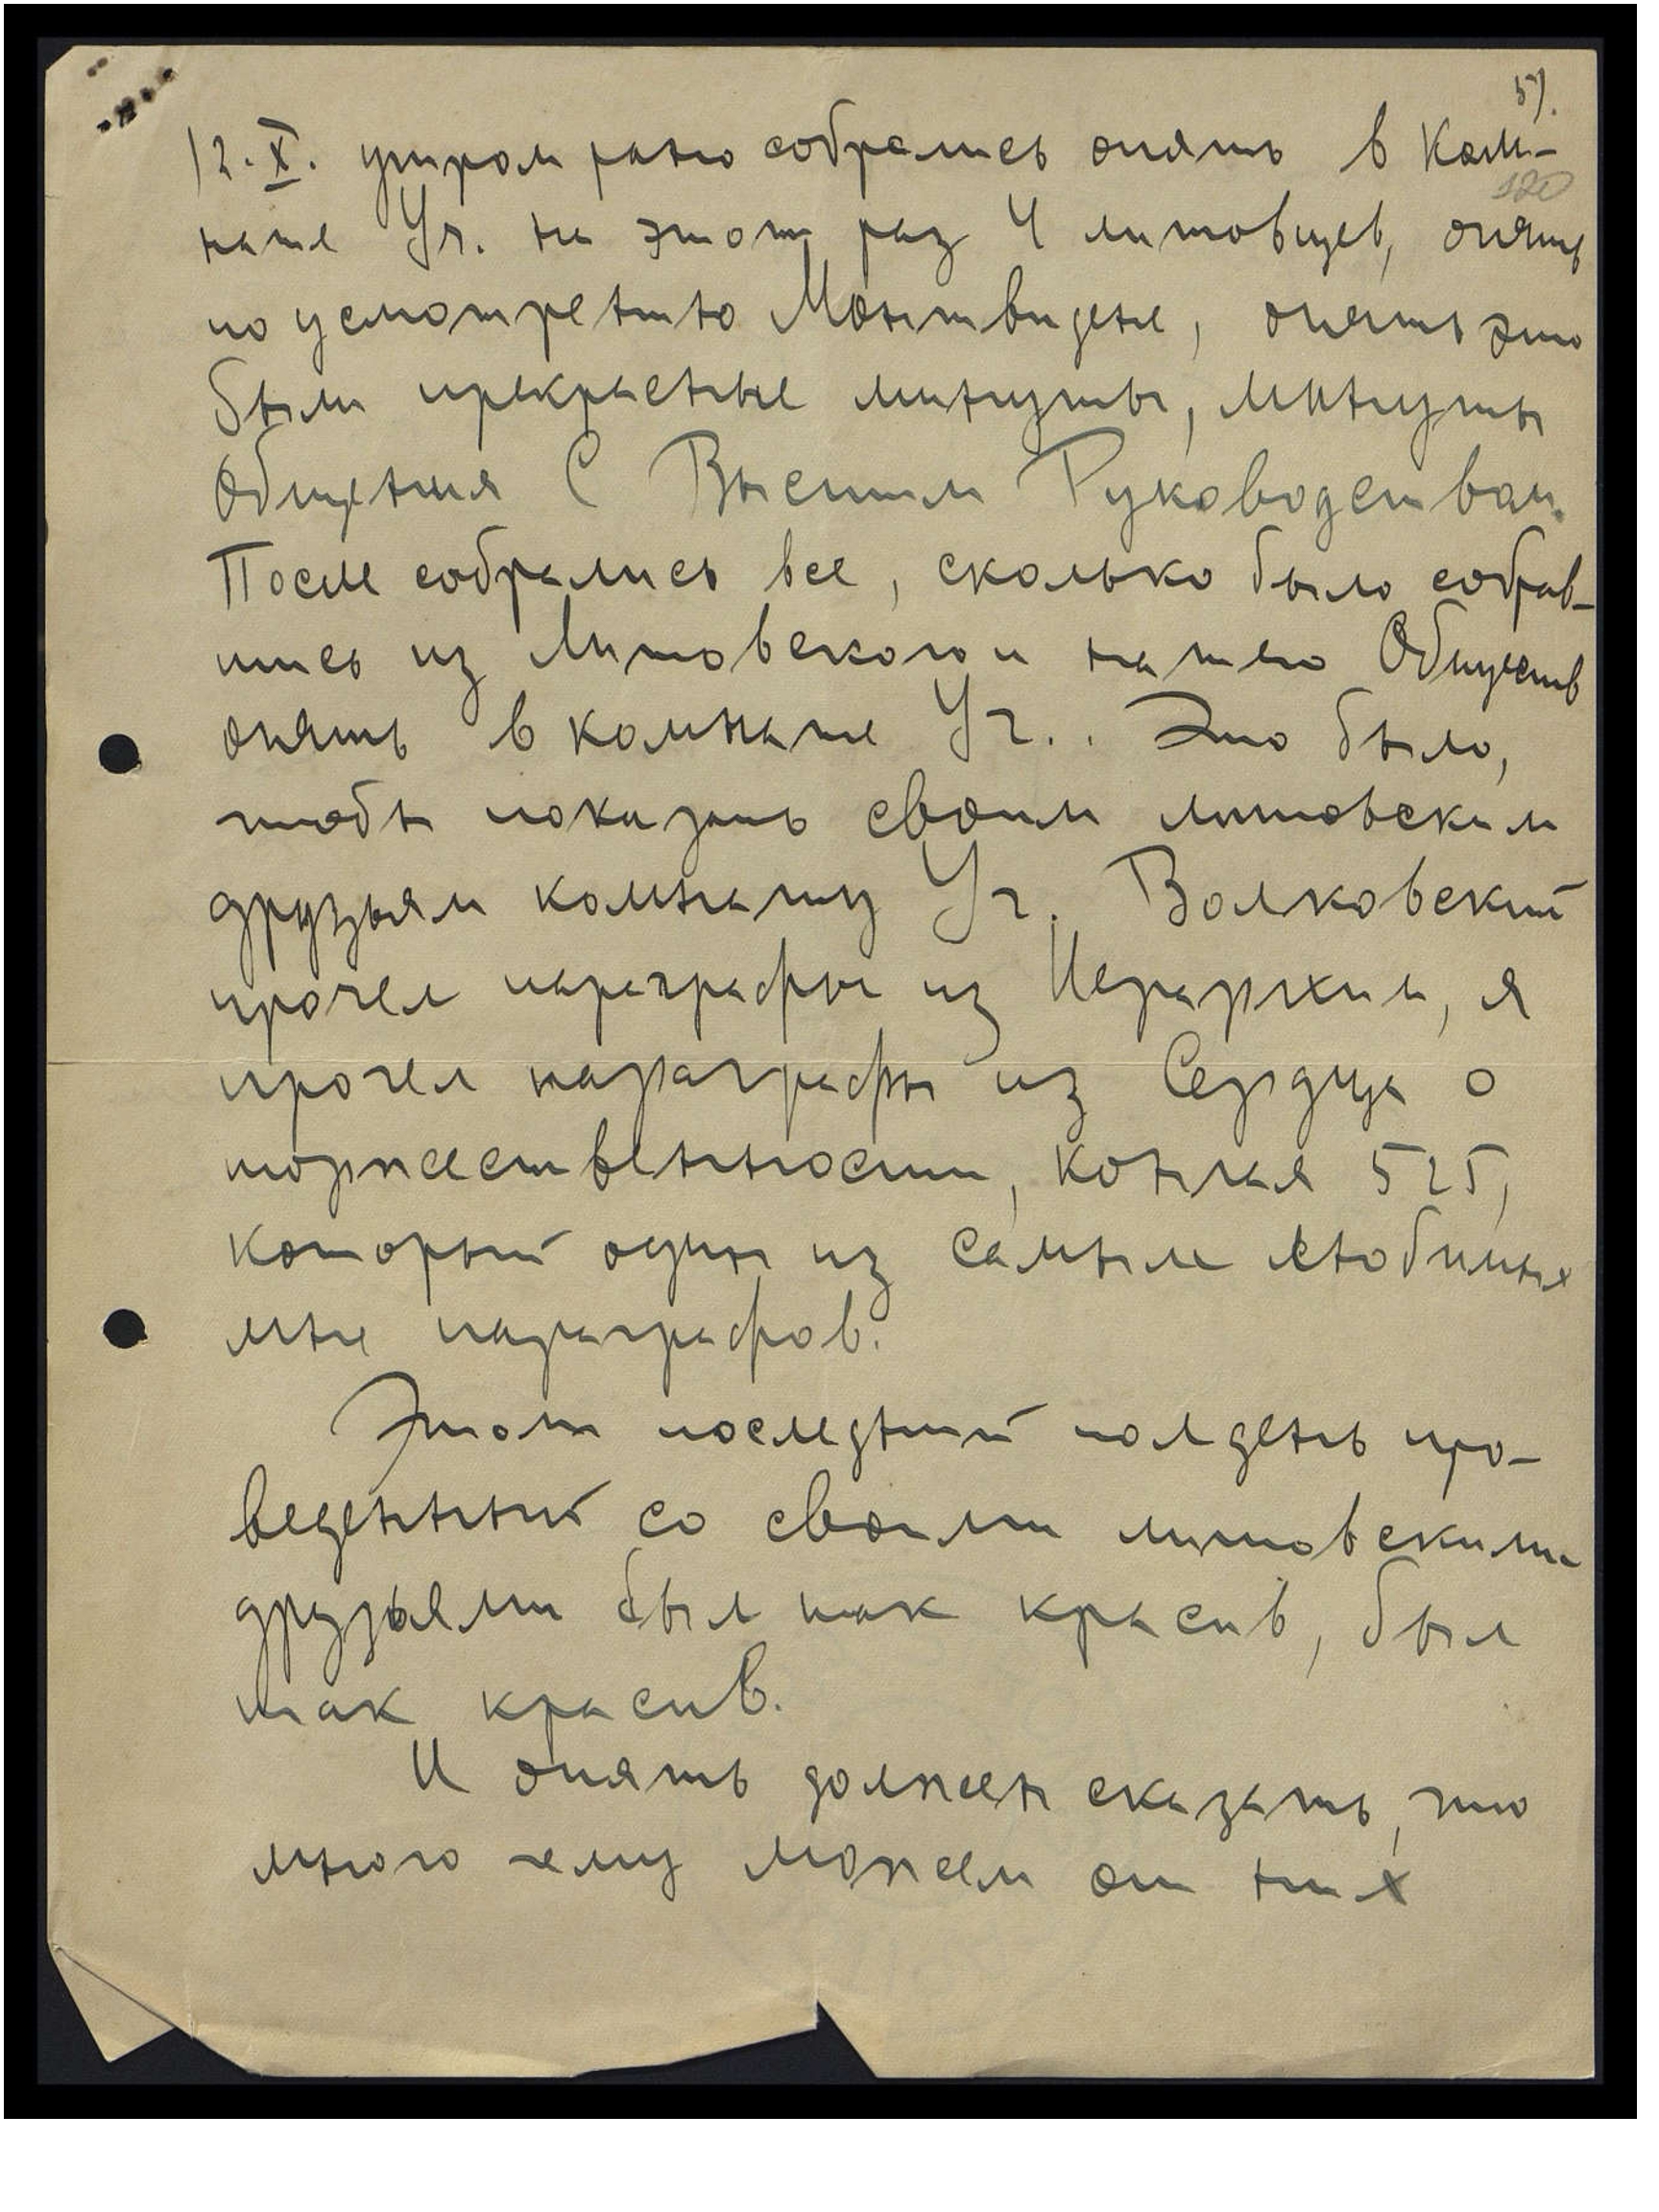 5).
12.X. утром рано собрались опять в ком-
120
нате Уч. на этот раз 4 литовцев, опять
по усмотрению Монтвидене, опять это
были прекрасные минуты, минуты
Общения С Высшим Руководством.
После собрались все, сколько было собрав-
шись из Литовского и нашего Обществ
опять в комнате Уч.. Это было,
чтобы показать своим литовским
друзьям комнату Уч. Волковский
прочел параграфы из Иерархии, я
прочел параграфы из Сердца о
торжественности, кончая 525,
который один из самые любимых
мне параграфов.
Этот последний полдень про-
веденный со своими литовскими
друзьями был так красив, был
так красив.
И опять должен сказать, что
много чему можем от них